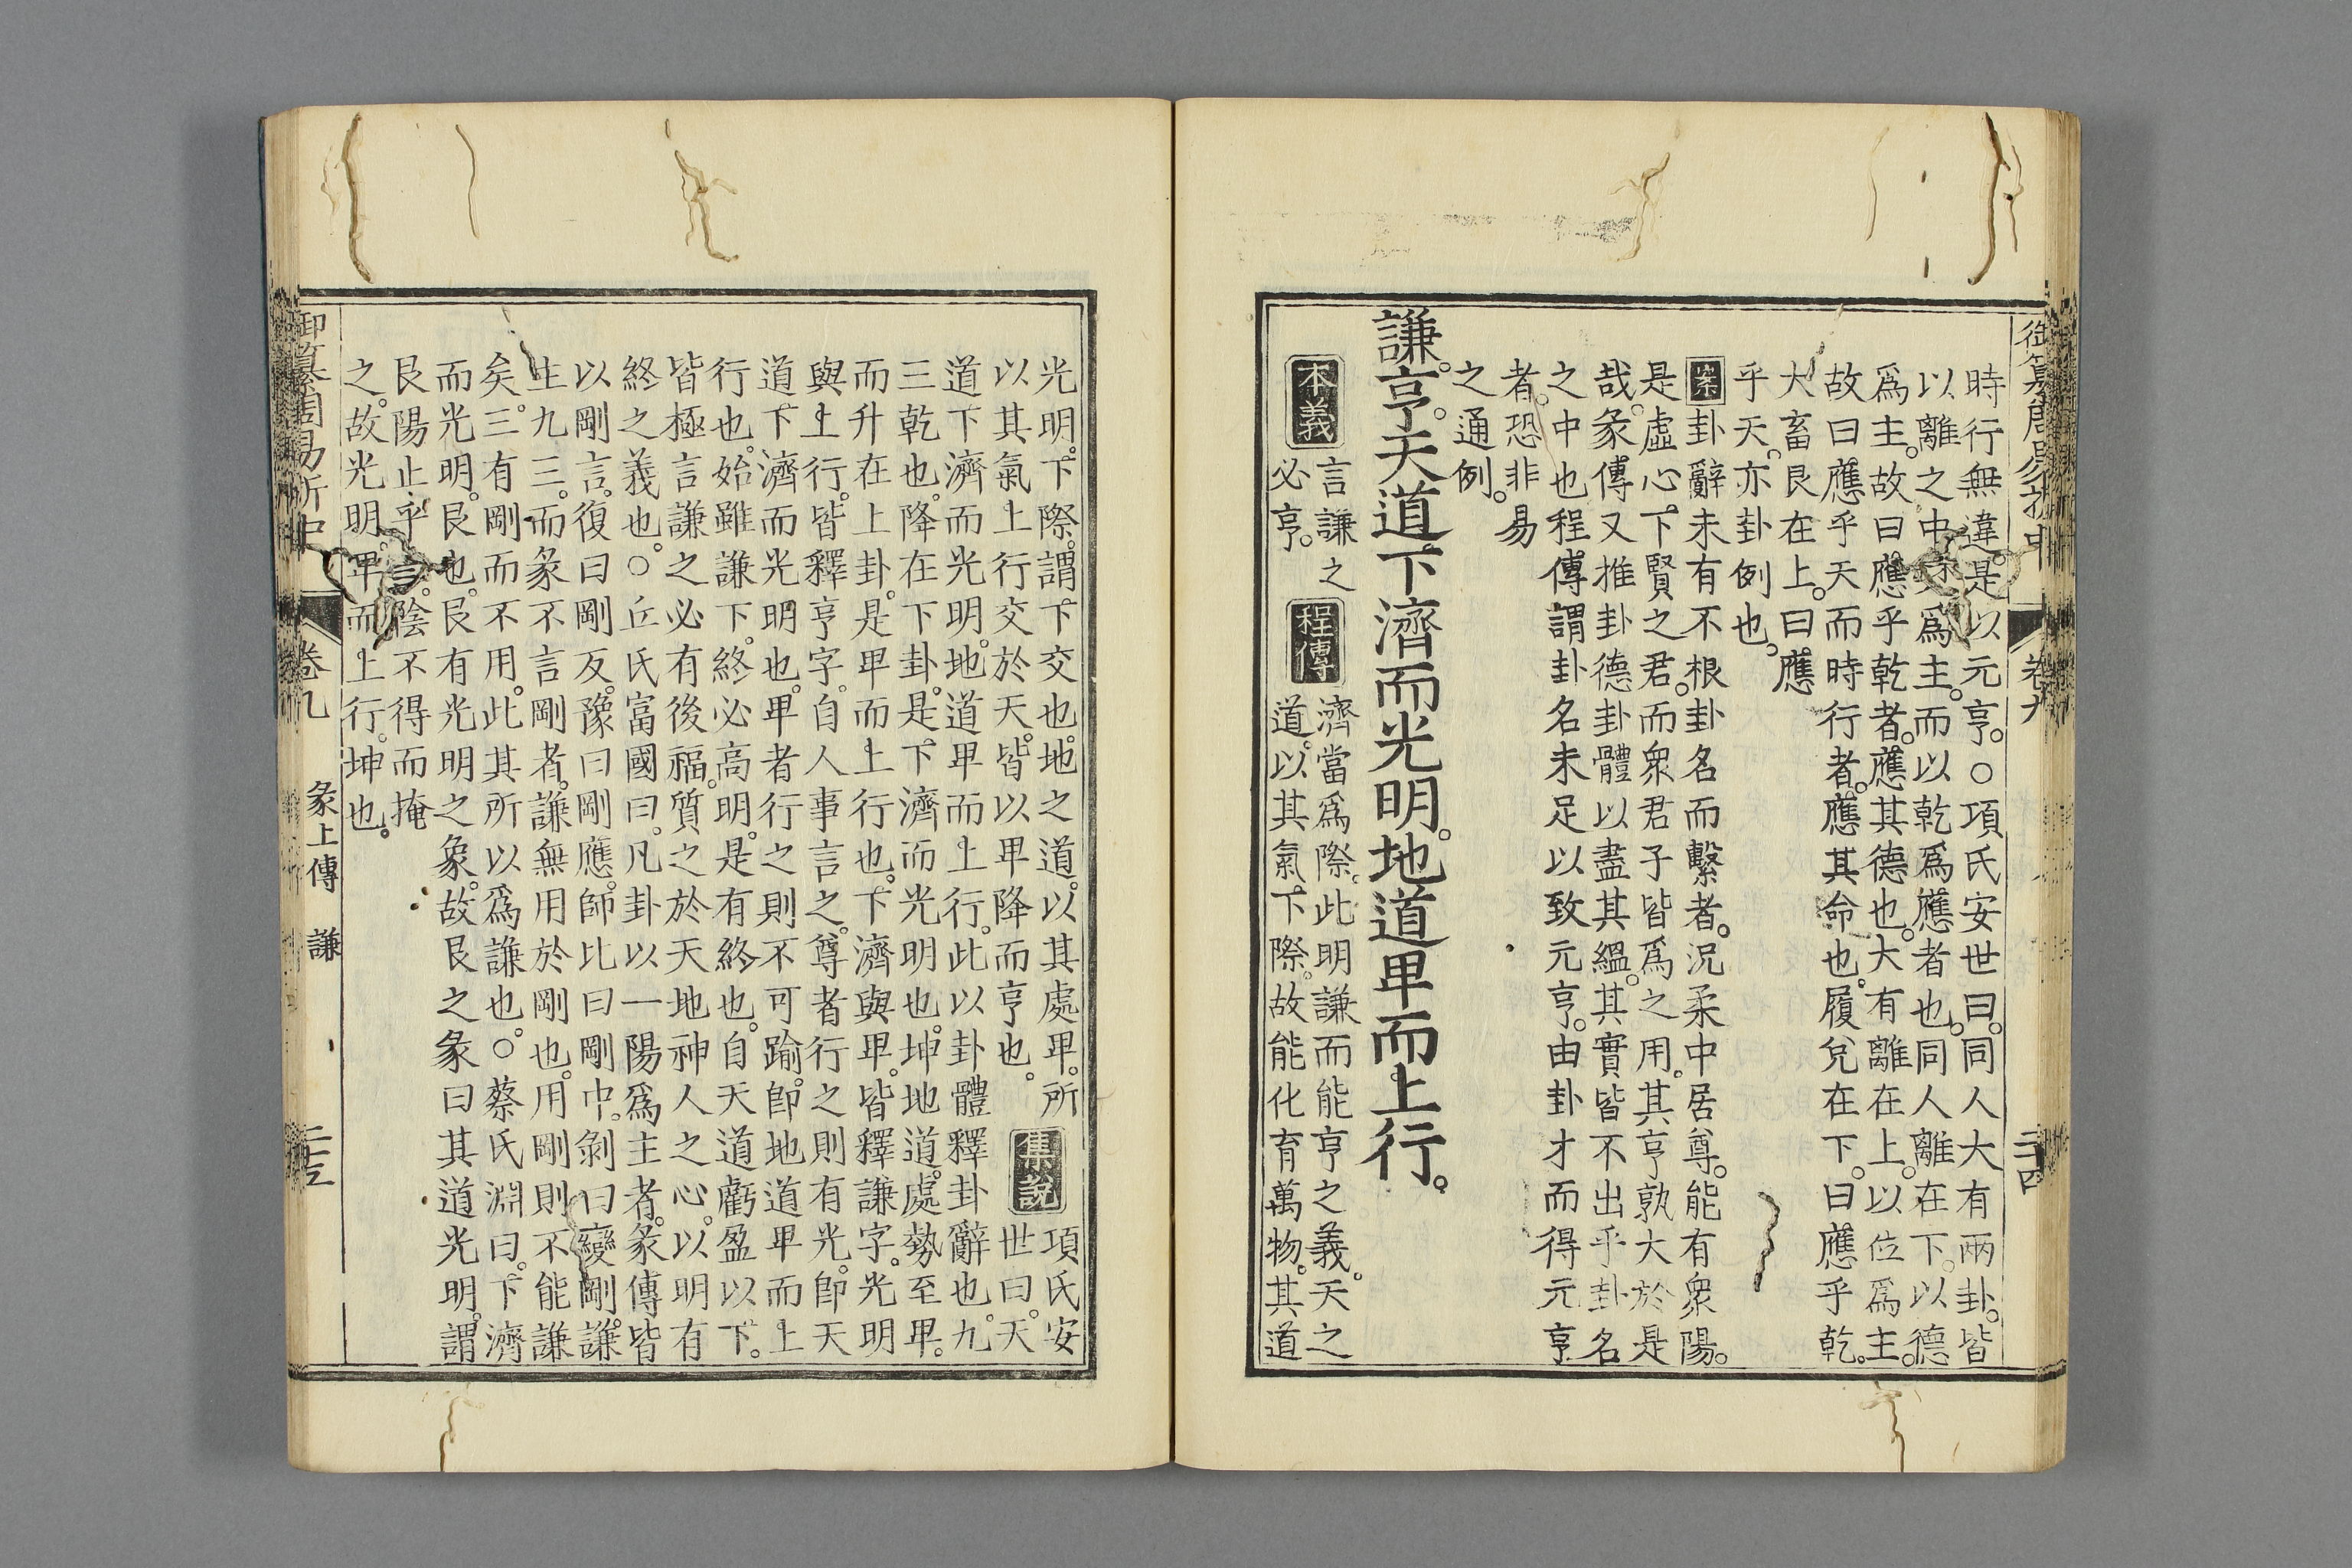 御纂周易折中 卷九 二十四
時行無違。是以元亨。○項氏安世曰。同人大有兩卦。皆
以離之中爻爲主。而以乾爲應者也。同人離在下。以德
爲主。故曰應乎乾者。應其德也。大有離在上。以位爲主。
故曰應乎天而時行者。應其命也。履兌在下。曰應乎乾。
大畜艮在上。曰應
乎天。亦卦例也。
案卦辭未有不根卦名而繫者。況柔中居尊。能有衆陽。
是虛心下賢之君。而衆君子皆爲之用。其亨孰大於是
哉。彖傳又推卦德卦體以盡其縕。其實皆不出乎卦名
之中也程傳謂卦名未足以致元亨。由卦才而得元亨
者。恐非易
之通例。
謙。亨。天道下濟而光明。地道卑而上行。
本義
言謙之
必亨。
程傳
濟當爲際。此明謙而能亨之義。天之
道。以其氣下際。故能化育萬物。其道
光明。下際。謂下交也。地之道。以其處卑。所
以其氣上行交於天。皆以卑降而亨也。
集說
項氏安
世曰。天
道下濟而光明。地道卑而上行。此以卦體釋卦辭也。九
三乾也。降在下卦。是下濟而光明也。坤地道。處勢至卑。
而升在上卦。是卑而上行也。下濟與卑。皆釋謙字。光明
與上行。皆釋亨字。自人事言之。尊者行之則有光。卽天
道下濟而光明也。卑者行之則不可踰。卽地道卑而上
行也。始雖謙下。終必高明。是有終也。自天道虧盈以下。
皆極言謙之必有後福。質之於天地神人之心。以明有
終之義也。○丘氏富國曰。凡卦以一陽爲主者。彖傳皆
以剛言。復曰剛反。豫曰剛應。師比曰剛中。剝曰變剛。謙
主九三。而彖不言剛者。謙無用於剛也。用剛則不能謙
矣。三有剛而不用。此其所以爲謙也。○蔡氏淵曰。下濟
而光明。艮也。艮有光明之象。故艮之彖曰其道光明。謂
艮陽止乎上。陰不得而掩
之。故光明。卑而上行。坤也。
御纂周易折中 卷九 彖上傳 謙 二十五